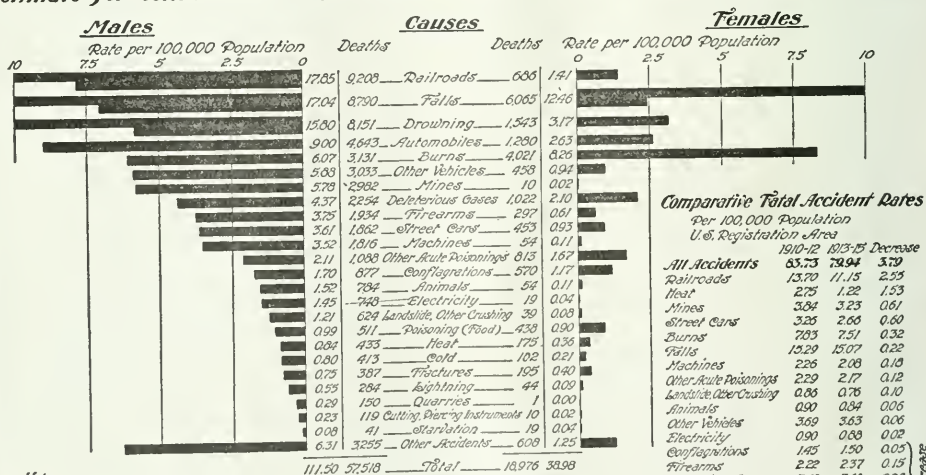 Males Causes Females
Rate per 100,000 Population Deaths Deaths Rate per 100,000 Population
10 7.5 5 2.5 0 0 2.5 5 7.5 10
17.85 9,208 Railroads 686 1.41
17.04 8,790 Falls 6,065 12.46
15.80 8,151 Drowning 1,543 3.17
9.00 4,643 Automobiles 1,280 2.63
6.07 3,131 Burns 4,021 8.26
5.88 3,033 Other Vehicles 458 0.94
5.78 2982 Mines 10 0.02
4.37 2,254 Deleterious Gases 1,022 2.10
3.75 1,934 Firearms 297 0.61
3.61 1,862 Street Cars 453 0.93
3.52 1,816 Machines 54 0.11
2.11 1,088 Other Acute Poisonings 813 1.67
1.70 877 Conflagrations 570 1.17
1.52 784 Animals 54 0.11
1.45 748 Electricity 19 0.04
1.21 624 Landslide, Other Crushing 39 0.08
0.99 511 Poisoning (Food) 438 0.90
0.84 433 Heat 175 0.36
0.80 413 Cold 102 0.21
0.75 387 Fractures 195 0.40
0.55 284 Lightning 44 0.09
0.29 150 Quarries 1 0.00
0.23 119 Cutting, Piercing Instruments 10 0.02
0.08 41 Starvation 19 0.04
6.31 3255 Other Accidents 608 1.25
111.50 57,518 Total 18,976 38.98
Comparative Fatal Accident Rates
Per 100,000 Population
U.S. Registration Area
1910-12 1913-15 Decrease
All Accidents 83.73 79.94 3.79
Railroads 13.70 11.15 2.55
Heat 2.75 1.22 1.53
Mines 3.84 3.23 0.61
Street Cars 3.26 2.66 0.60
Burns 7.83 7.51 0.32
Falls 15.29 15.07 0.22
Machines 2.26 2.08 0.18
Other Acute Poisonings 2.29 2.17 0.12
Landslide, Other Crushing 0.86 0.76 0.10
Animals 0.90 0.84 0.06
Other Vehicles 3.69 3.63 0.06
Electricity 0.90 0.88 0.02
Conflagrations 1.45 1.50 0.05
Firearms 2.22 2.37 0.15